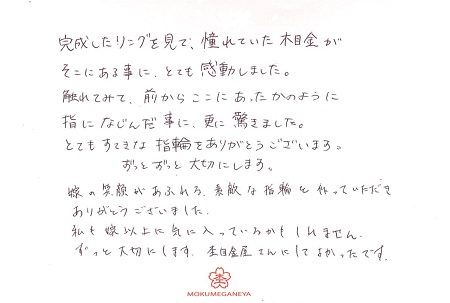 完成したリングを見て、憧れていた木目金が
そこにある事に、とても感動しました。
触れてみて、前からここにあったかのように
指になじんだ事に、更に驚きました。
とてもすてきな指輪をありがとうございます。
ずっとずっと大切にします。
嫁の笑顔があふれる、素敵な指輪を作っていただき
ありがとうございました。
私も嫁以上に気に入っているかもしれません。
ずっと大切にします。杢目金屋さんにしてよかったです。
MOKUMEGANEYA